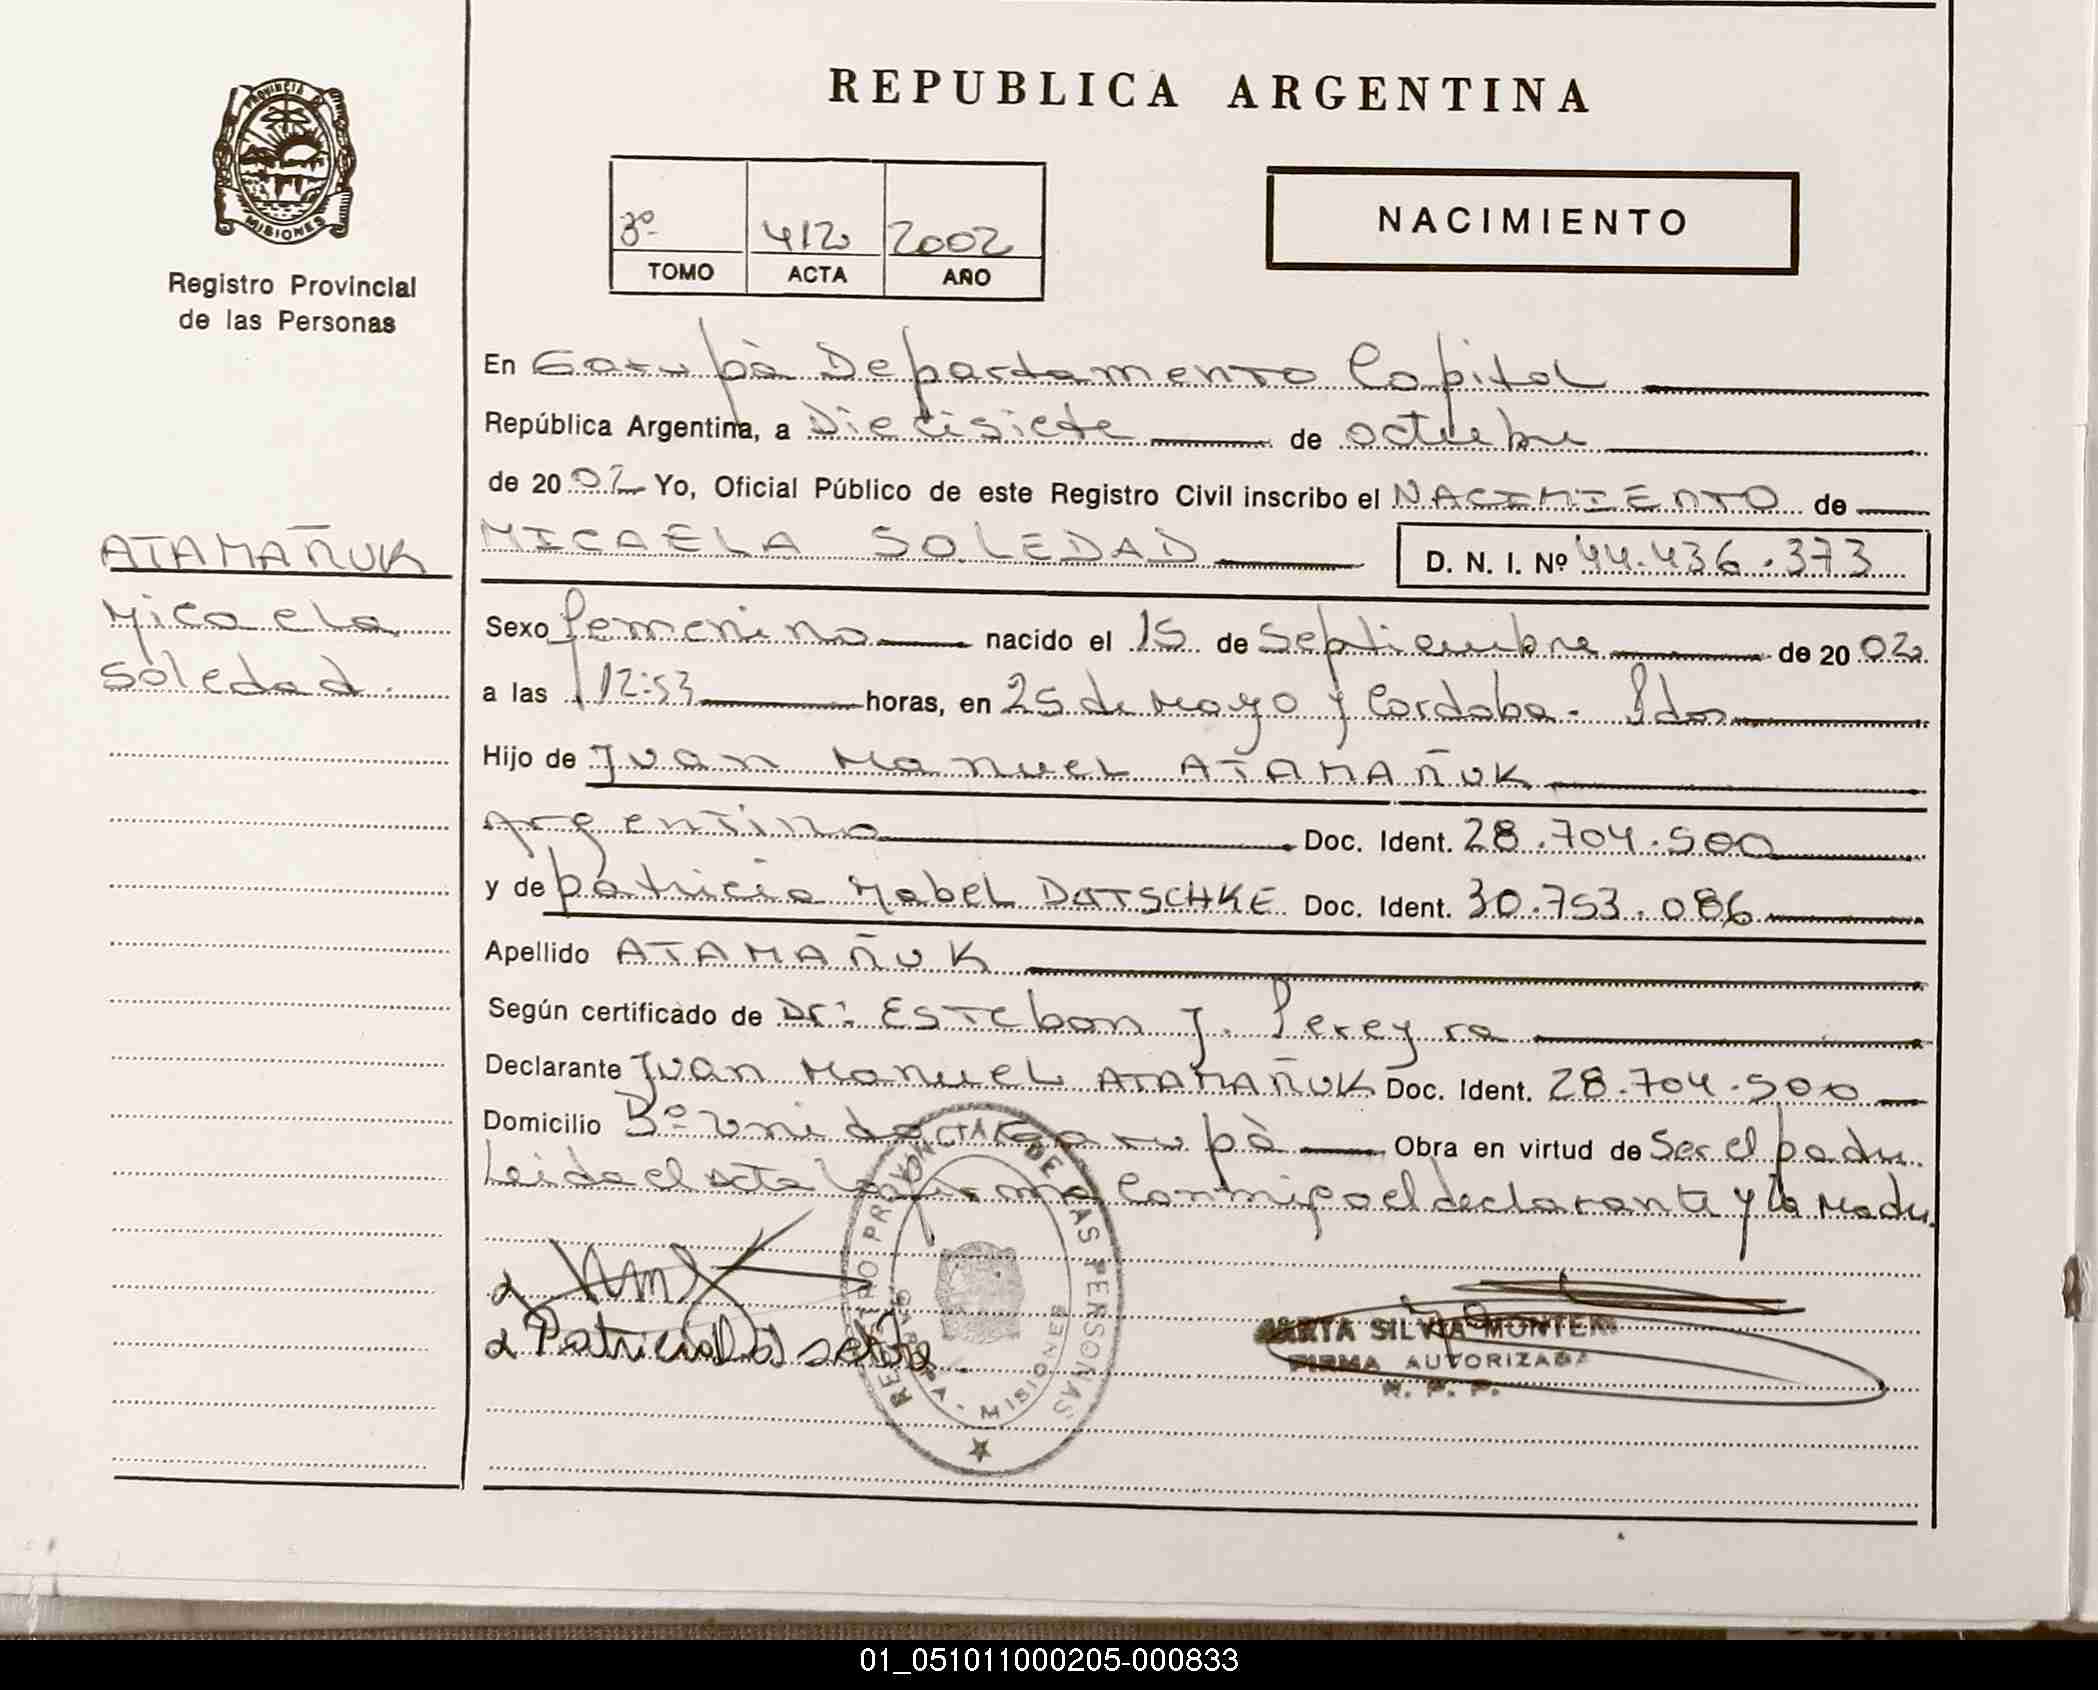 REPUBLICA ARGENTINA
PROVINCIA DE
MISIONES
Registro Provincial
de las Personas
3º 412 2002
TOMO ACTA AÑO
NACIMIENTO
En Garupà Departamento Capital
República Argentina, a Diecisiete de octubre
de 2002 Yo, Oficial Público de este Registro Civil inscribo el NACIMIENTO de
ATAMAÑUK
Micaela
Soledad
MICAELA SOLEDAD D. N. I. Nº 44.436.373
Sexo femenino nacido el 15 de Septiembre de 2002
a las 12:53 horas, en 25 de Mayo y Cordoba - Pdas
Hijo de Juan Manuel ATAMAÑUK
Argentino Doc. Ident. 28.704.500
y de Patricia Mabel DATSCHKE Doc. Ident. 30.753.086
Apellido ATAMAÑUK
Según certificado de Dr: Esteban J. Pereyra
Declarante Juan Manuel ATAMAÑUK Doc. Ident. 28.704.500
Domicilio Bº Unida Garupà Obra en virtud de Ser el padre.
Leida el acta la firma conmigo el declarante y la Madre.
REGISTRO PROVINCIAL DE LAS PERSONAS
MISIONES
Patricia
MARTA SILVIA MONTERO
FIRMA AUTORIZADA
R. P. P.
01_051011000205-000833